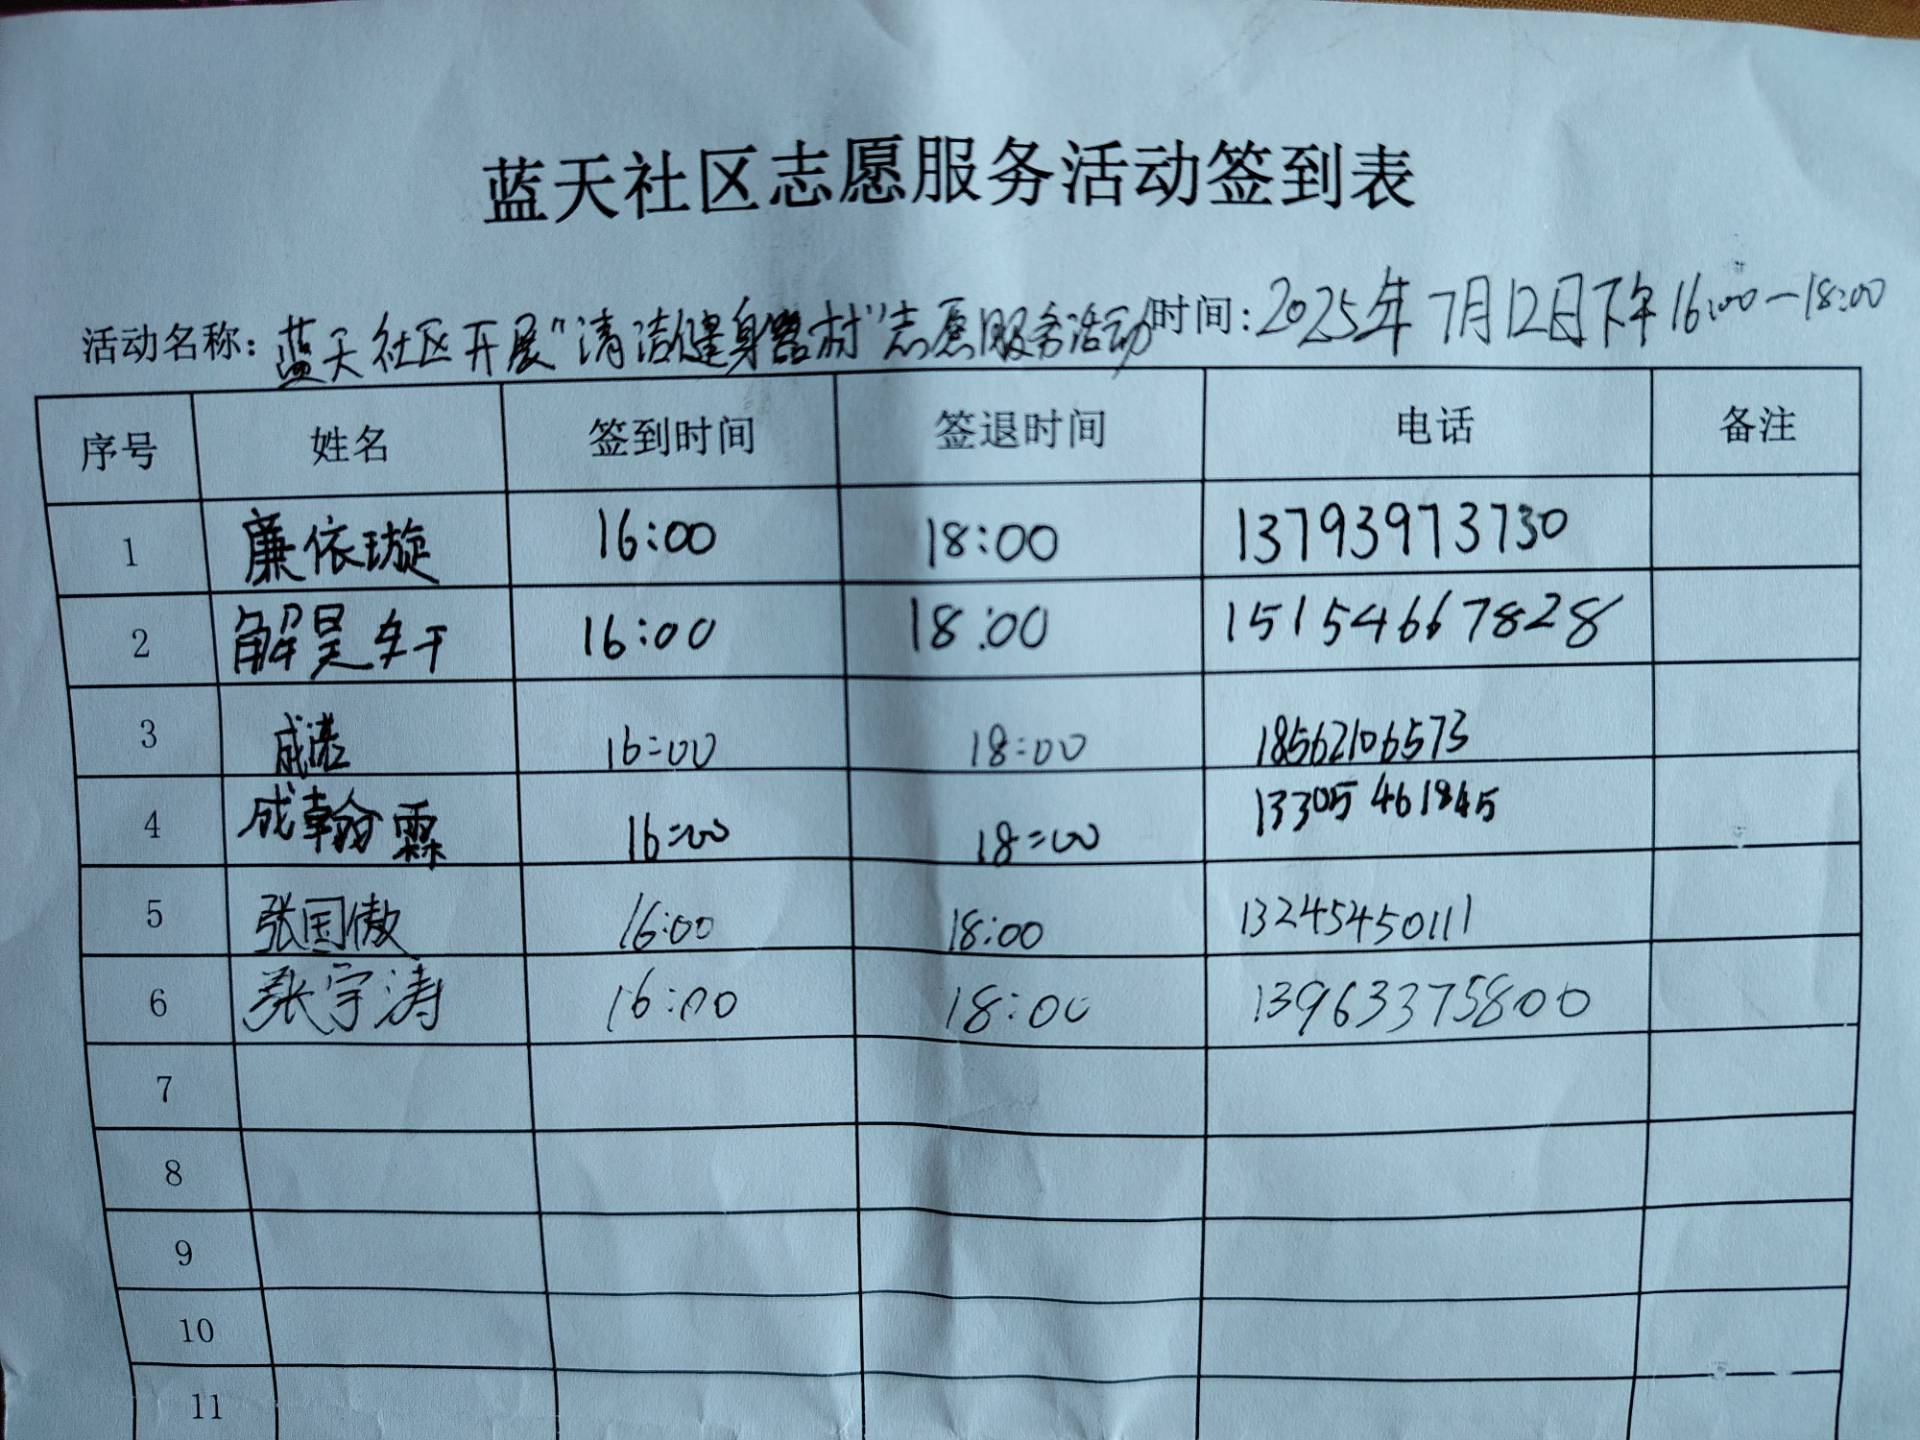 蓝天社区志愿服务活动签到表
活动名称:蓝天社区开展"清洁健身器材"志愿服务活动 时间:2025年7月12日下午16:00-18:00
序号 姓名 签到时间 签退时间 电话 备注
1 廉依璇 16:00 18:00 13793973730
2 解昊轩 16:00 18:00 15154667828
3 成港 16:00 18:00 18562106573
4 成翰霖 16:00 18:00 13305461845
5 张国傲 16:00 18:00 13245450111
6 张宇涛 16:00 18:00 13963375800
7
8
9
10
11